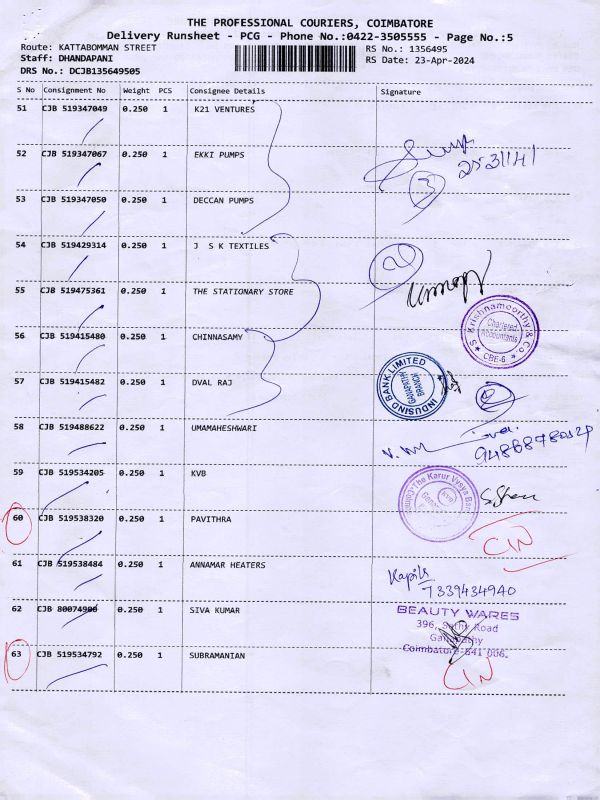 THE PROFESSIONAL COURIERS, COIMBATORE
Delivery Runsheet - PCG - Phone No.:0422-3505555 - Page No.:5
Route: KATTABOMMAN STREET RS No.: 1356495
Staff: DHANDAPANI RS Date: 23-Apr-2024
DRS No.: DCJB135649505
S No Consignment No Weight PCS Consignee Details Signature
51 CJB 519347049 0.250 1 K21 VENTURES
52 CJB 519347067 0.250 1 EKKI PUMPS
2531141
3
53 CJB 519347050 0.250 1 DECCAN PUMPS
54 CJB 519429314 0.250 1 J S K TEXTILES
2
55 CJB 519475361 0.250 1 THE STATIONARY STORE
S. Krishnamoorthy & Co
Chartered
Accountants
CBE-6
56 CJB 519415480 0.250 1 CHINNASAMY
INDUSIND BANK LIMITED
GANAPATHY
BRANCH
57 CJB 519415482 0.250 1 DVAL RAJ
2
58 CJB 519488622 0.250 1 UMAMAHESHWARI
59 CJB 519534205 0.250 1 KVB
The Karur Vysya Bank
60 CJB 519538320 0.250 1 PAVITHRA
CIN
61 CJB 519538484 0.250 1 ANNAMAR HEATERS
Kapil
7339434940
62 CJB 80074900 0.250 1 SIVA KUMAR
BEAUTY WARES
396, Sathy Road
Ganapathy
Coimbatore-641 006.
63 CJB 519534792 0.250 1 SUBRAMANIAN
CIN